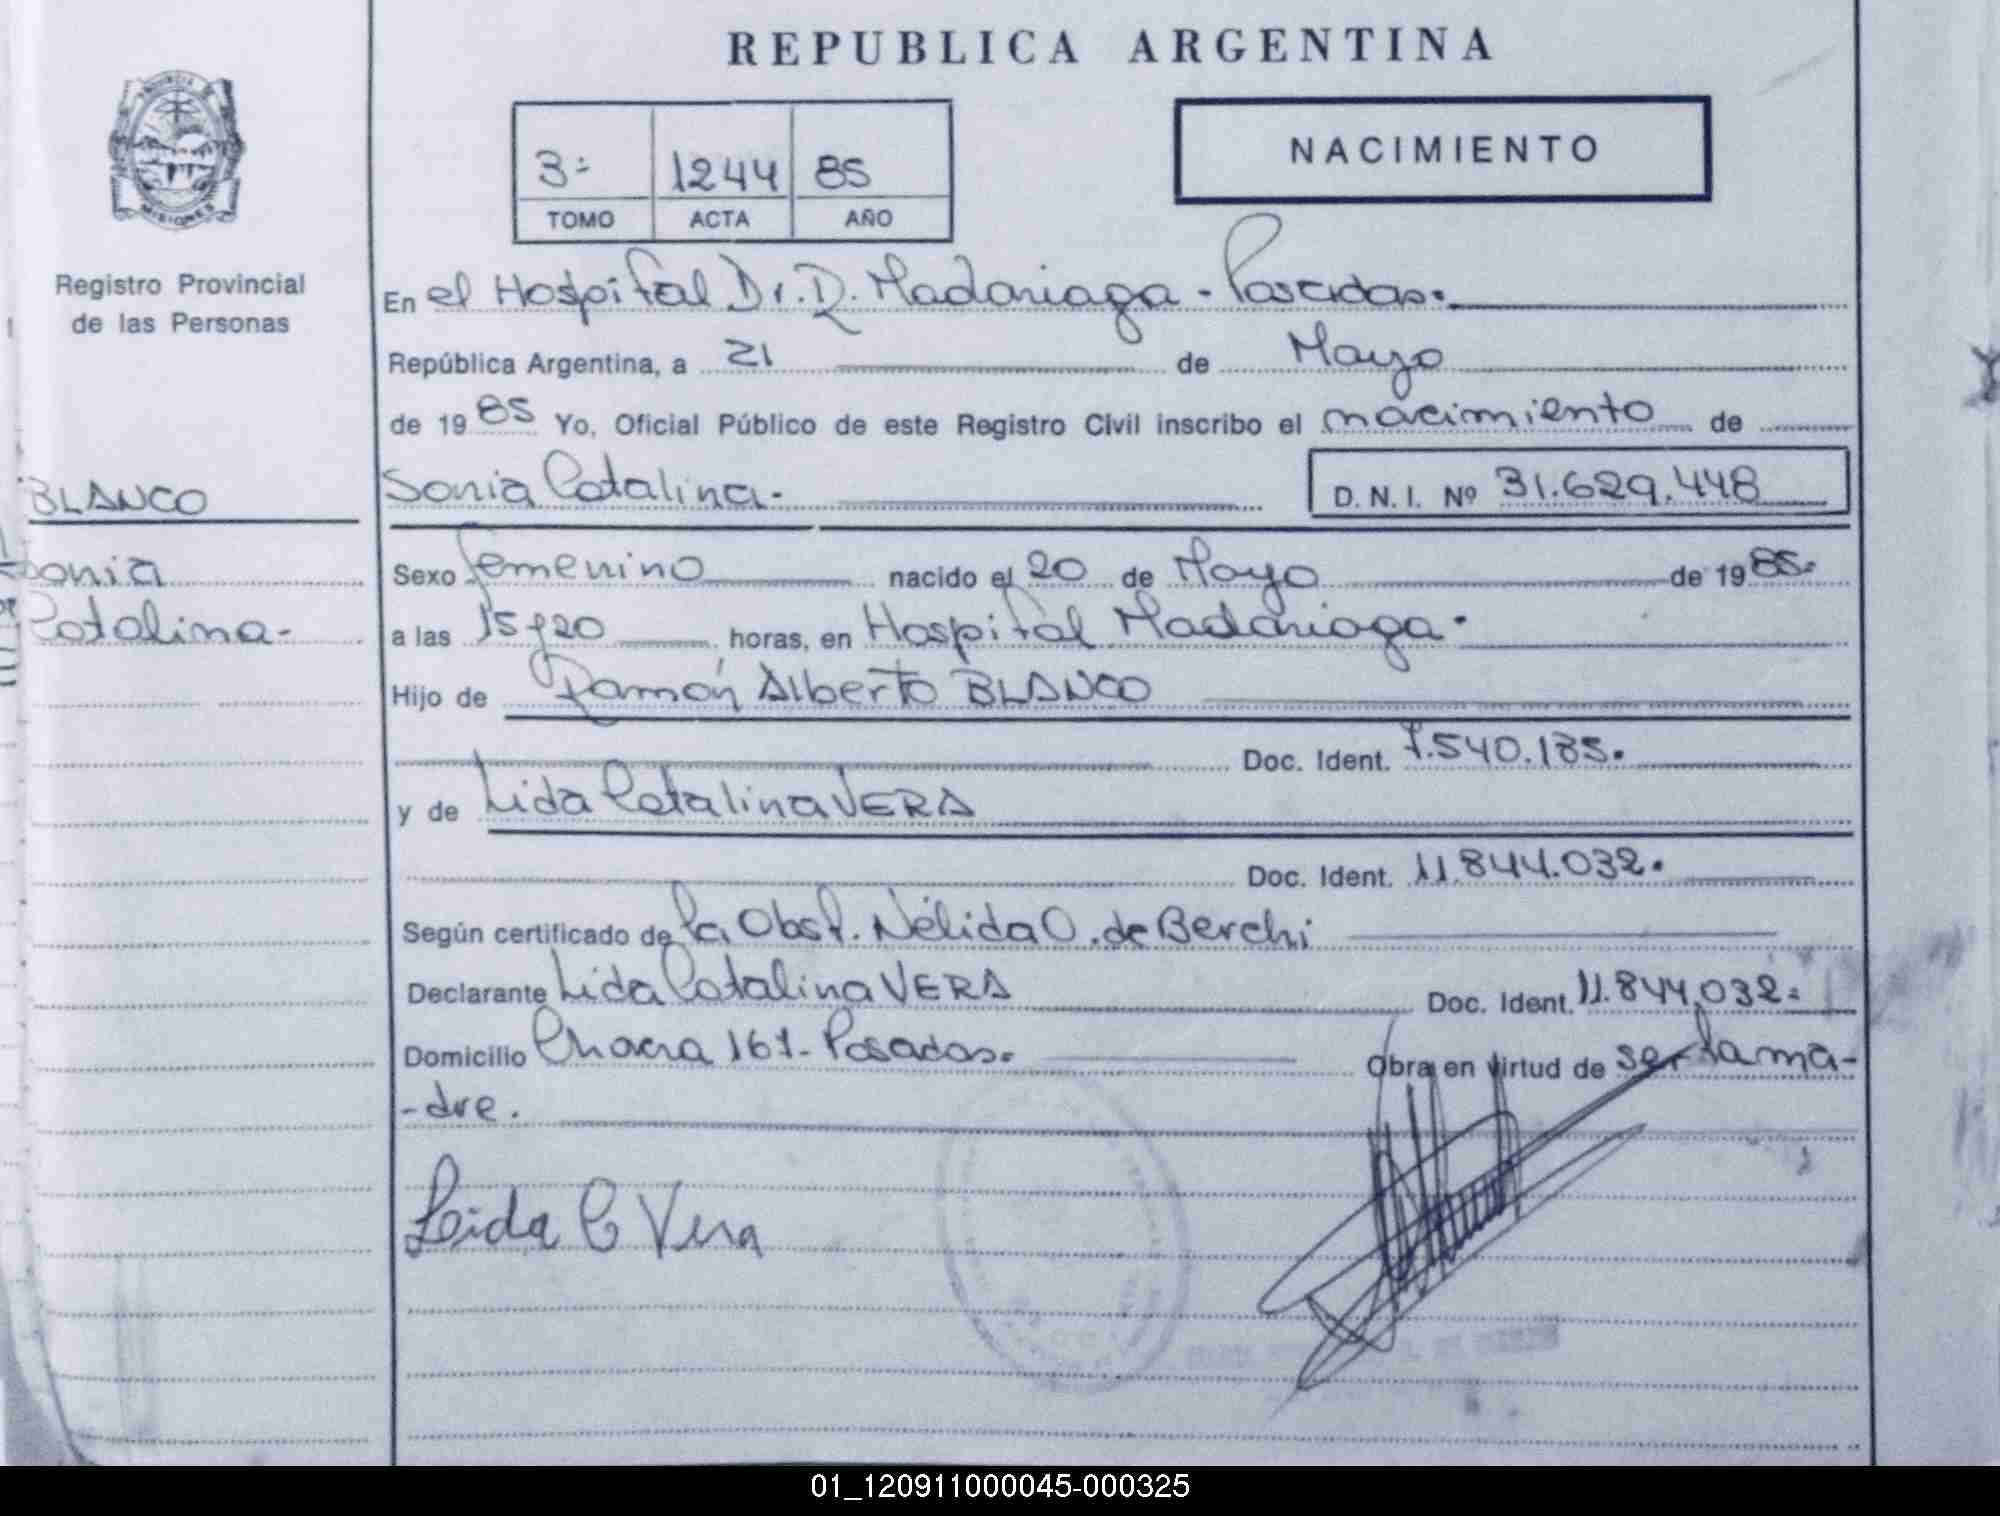 REPUBLICA ARGENTINA
PROVINCIA DE
MISIONES
Registro Provincial
de las Personas
3-
1244
85
TOMO
ACTA
AÑO
NACIMIENTO
En el Hospital Dr. R. Madariaga - Posadas.
República Argentina, a 21 de Mayo
de 19 85 Yo, Oficial Público de este Registro Civil inscribo el nacimiento de
BLANCO
Sonia Catalina.-
D. N. I. Nº 31.629.448
Sonia
Catalina-
Sexo femenino nacido el 20 de Mayo de 19 85.
a las 15 y 20 horas, en Hospital Madariaga.
Hijo de Ramón Alberto BLANCO
Doc. Ident. 7.540.185.
y de Lida Catalina VERA
Doc. Ident. 11.844.032.
Según certificado de la Obst. Nélida O. de Berchi
Declarante Lida Catalina VERA Doc. Ident. 11.844.032.
Domicilio Chacra 167- Posadas. Obra en virtud de ser la ma-
-dre.
Leida C Vera
01_120911000045-000325